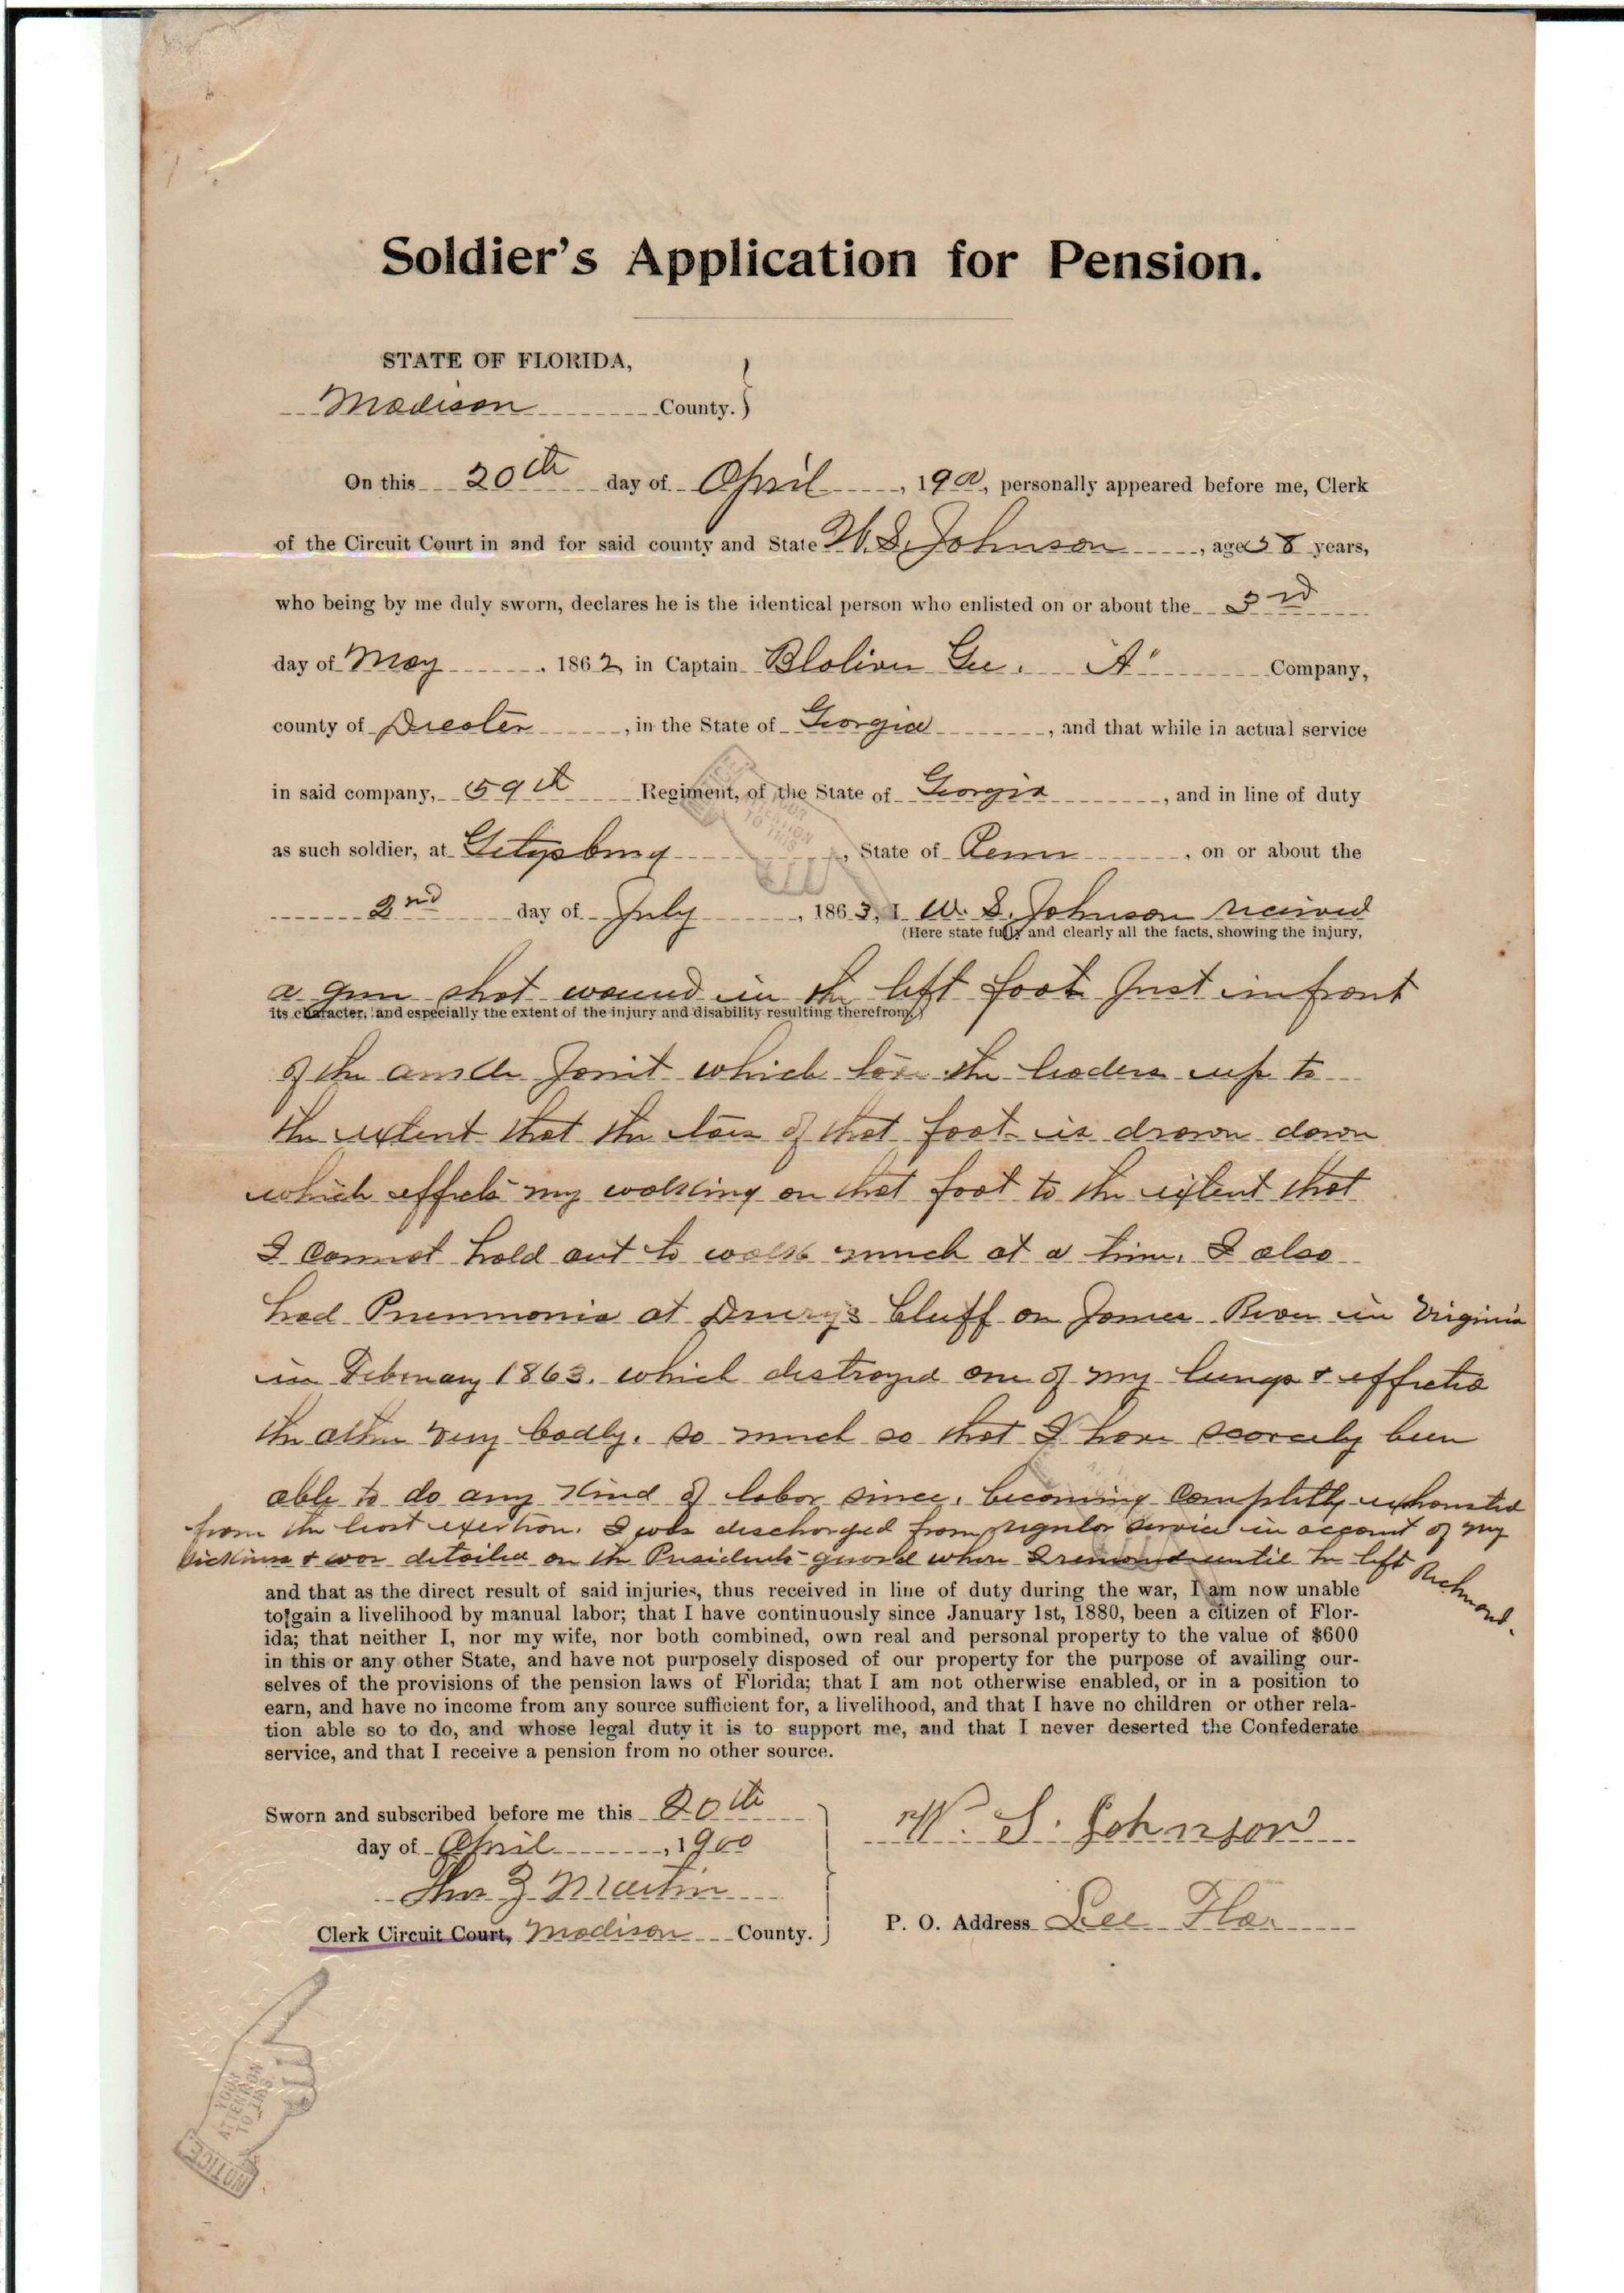 Soldier's Application for Pension.
STATE OF FLORIDA,
Madison County. }
On this 20th day of April, 1900, personally appeared before me, Clerk
of the Circuit Court in and for said county and State W. S. Johnson, age 58 years,
who being by me duly sworn, declares he is the identical person who enlisted on or about the 3rd
day of May, 1862 in Captain "A" Company,
county of, in the State of Georgia, and that while in actual service
in said company, 59th Regiment, of the State of Georgia, and in line of duty
as such soldier, at Getysburg, State of Penn, on or about the
2nd day of July, 1863, I W. S. Johnson received
(Here state fully and clearly all the facts, showing the injury,
a gun shot wound in the left foot Just infront
its character, and especially the extent of the injury and disability resulting therefrom.)
of the Joint which tore the leaders up to
the extent that the toes of that foot is drawn down
which effects my walking on that foot to the extent that
I cannot hold out to walk much at a time. I also
had Pneumonia at Drurys Bluff on James River in Virginia
in February 1863. which destroyed one of my lungs & effected
the other very badly. so much so that I have scarcely been
able to do any kind of labor since, becoming completly exhausted
from the least exertion. I was discharged from regular service in account of my
sickness & was detailed on the Presidents guard where I remained until he left Richmond.
and that as the direct result of said injuries, thus received in line of duty during the war, I am now unable
to gain a livelihood by manual labor; that I have continuously since January 1st, 1880, been a citizen of Flor-
ida; that neither I, nor my wife, nor both combined, own real and personal property to the value of $600
in this or any other State, and have not purposely disposed of our property for the purpose of availing our-
selves of the provisions of the pension laws of Florida; that I am not otherwise enabled, or in a position to
earn, and have no income from any source sufficient for, a livelihood, and that I have no children or other rela-
tion able so to do, and whose legal duty it is to support me, and that I never deserted the Confederate
service, and that I receive a pension from no other source.
Sworn and subscribed before me this 20th
day of April, 1900
W. S. Johnson
Martin
Clerk Circuit Court, Madison County. }
P. O. Address Lee Fla.
YOUR
ATTENTION
TO THIS
NOTICE